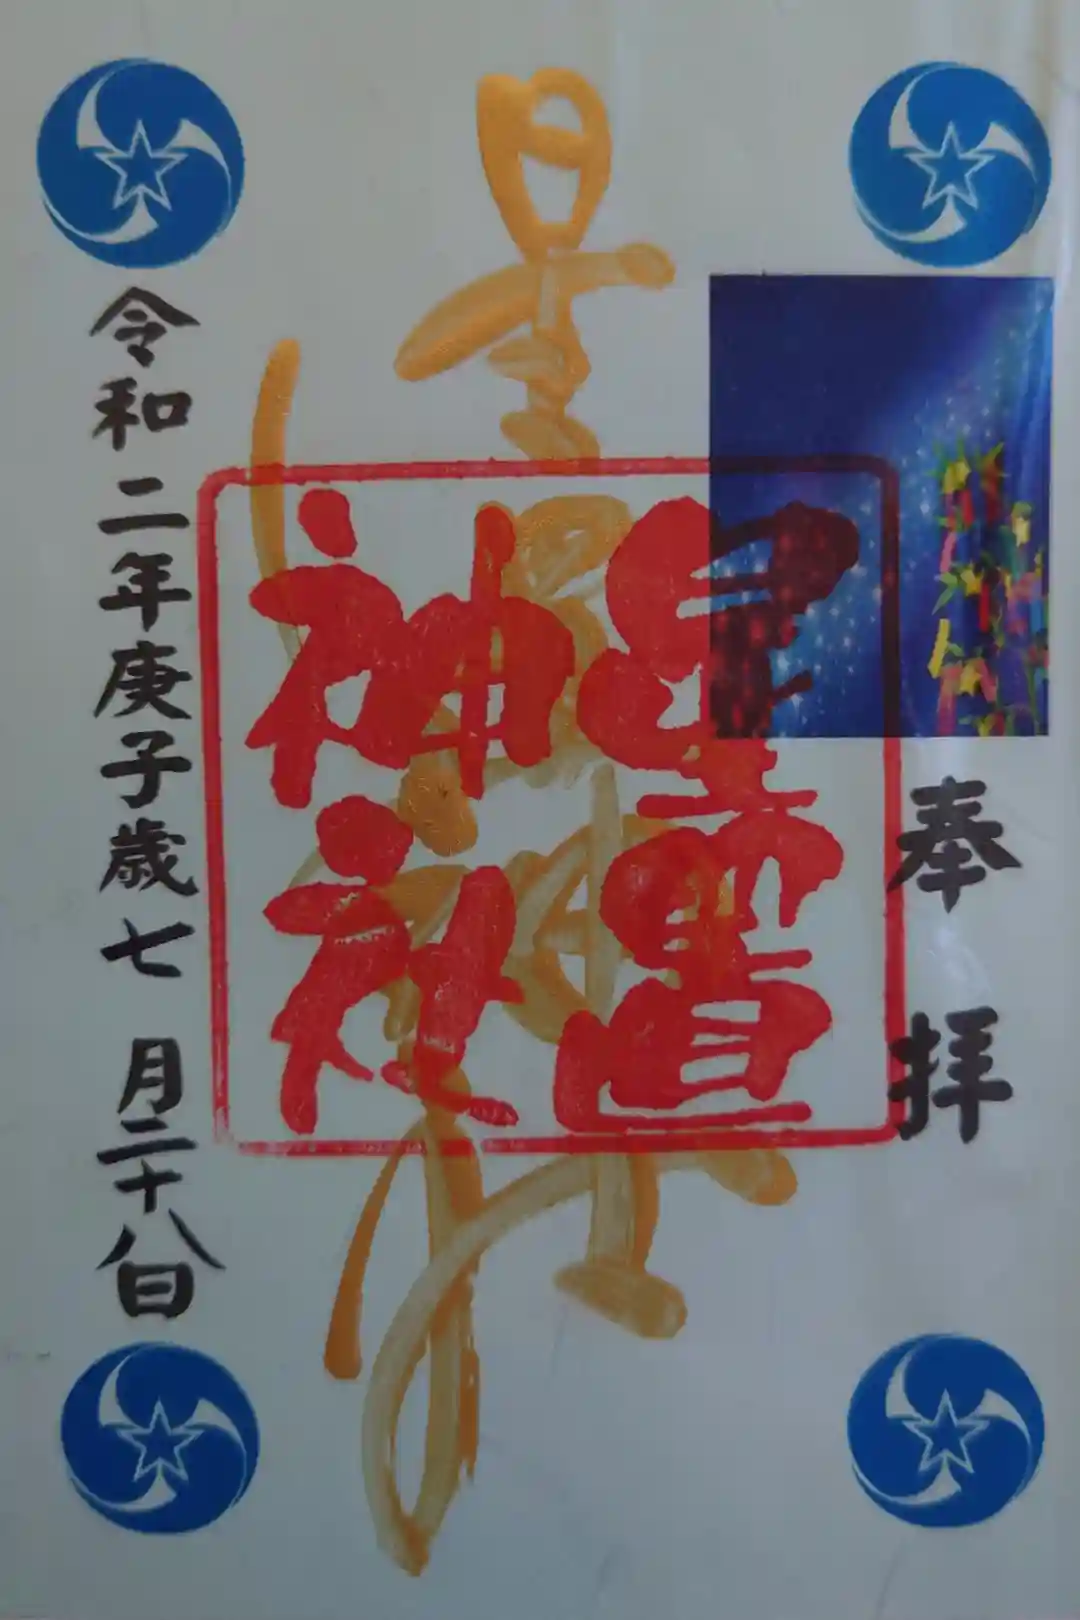 奉拝
星置神社
星置
神社
令和二年庚子歳七月二十八日